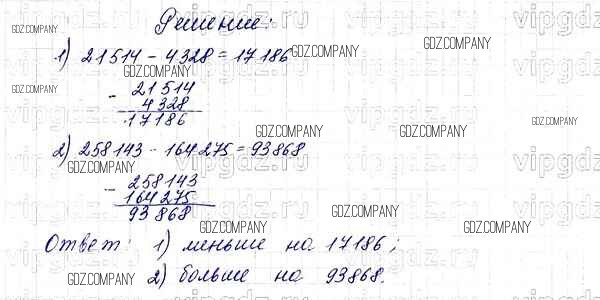 Решение:
GDZ.COMPANY
1) 21514 - 4328 = 17186
GDZ.COMPANY
GDZ.COMPANY
GDZ.COMPANY
GDZ.COMPANY
- 21514
4328
17186
GDZ.COMPANY
GDZ.COMPANY
GDZ.COMPANY
2) 258143 - 164275 = 93868
GDZ.COMPANY
- 258143
164275
93868
GDZ.COMPANY
GDZ.COMPANY
GDZ.COMPANY
Ответ: 1) меньше на 17186;
2) больше на 93868.
GDZ.COMPANY
GDZ.COMPANY
GDZ.COMPANY
vipgdz.ru
vipgdz.ru
vipgdz.ru
vipgdz.ru